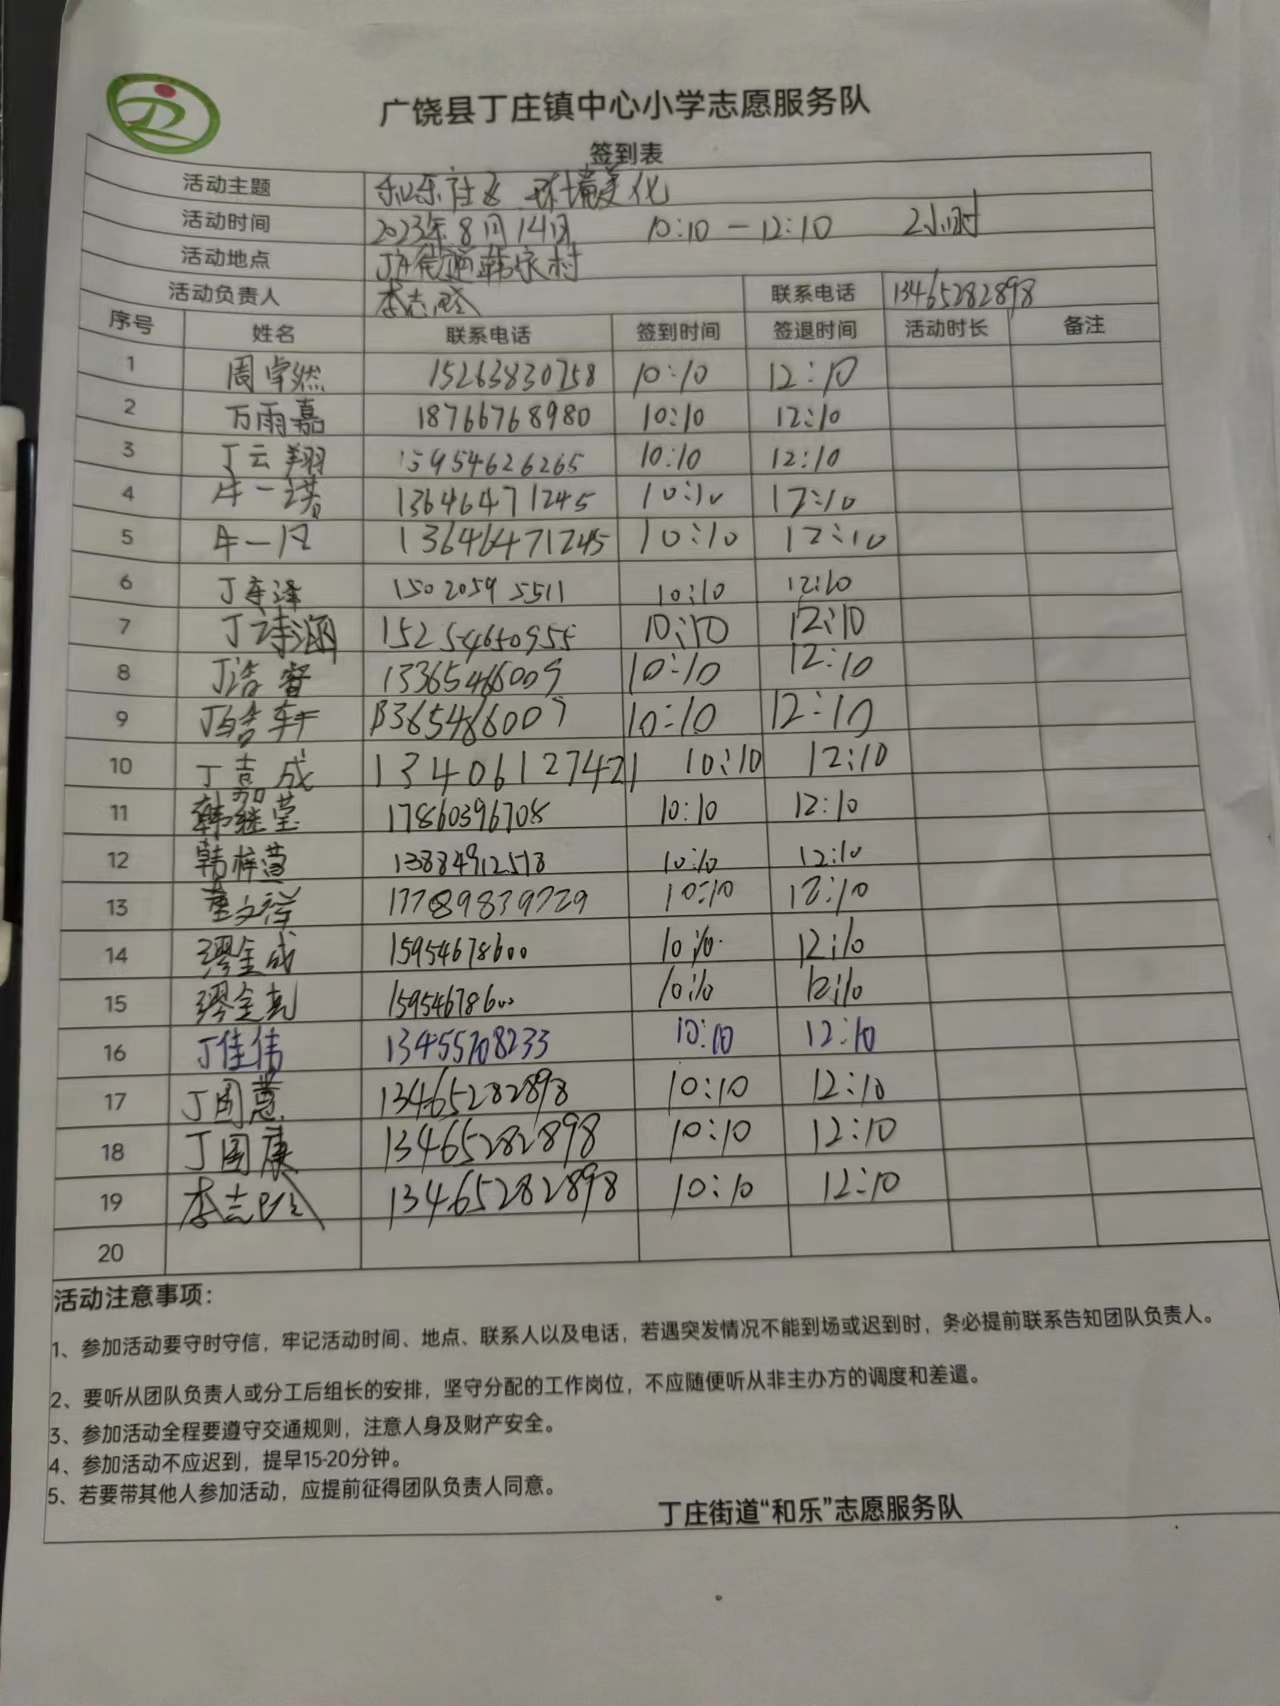 广饶县丁庄镇中心小学志愿服务队
签到表
活动主题 和乐社区 环境美化
活动时间 2023年8月14日 10:10—12:10 2小时
活动地点 丁庄街道韩家村
活动负责人 李志 联系电话 13465282898
序号 姓名 联系电话 签到时间 签退时间 活动时长 备注
1 周卓然 15263830758 10:10 12:10
2 万雨嘉 18766768980 10:10 12:10
3 丁云翔 15954626265 10:10 12:10
4 牛一诺 13646471245 10:10 12:10
5 牛一凡 13646471245 10:10 12:10
6 丁泽 15020595511 10:10 12:10
7 丁诗涵 15254650955 10:10 12:10
8 丁浩睿 13365466009 10:10 12:10
9 丁皓轩 13365466009 10:10 12:10
10 丁嘉成 13406127421 10:10 12:10
11 韩继莹 17860396708 10:10 12:10
12 韩梓萱 13884912518 10:10 12:10
13 董文祥 17789839729 10:10 12:10
14 缪金成 15954678600 10:10 12:10
15 缪金 15954678600 10:10 12:10
16 丁佳伟 13455708233 10:10 12:10
17 丁国慧 13465282898 10:10 12:10
18 丁国康 13465282898 10:10 12:10
19 李志 13465282898 10:10 12:10
20
活动注意事项：
1、参加活动要守时守信，牢记活动时间、地点、联系人以及电话，若遇突发情况不能到场或迟到时，务必提前联系告知团队负责人。
2、要听从团队负责人或分工后组长的安排，坚守分配的工作岗位，不应随便听从非主办方的调度和差遣。
3、参加活动全程要遵守交通规则，注意人身及财产安全。
4、参加活动不应迟到，提早15-20分钟。
5、若要带其他人参加活动，应提前征得团队负责人同意。
丁庄街道“和乐”志愿服务队